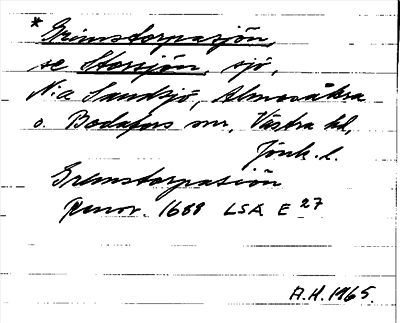 *Grimstorpasjön,
se Storsjön, sjö,
N:a Sandsjö, Almesåkra
o. Bodafors snr, Västra hd,
Jönk. l.
Gremstorpasiön
Renov. 1688 LSA E 27
A.H. 1965.